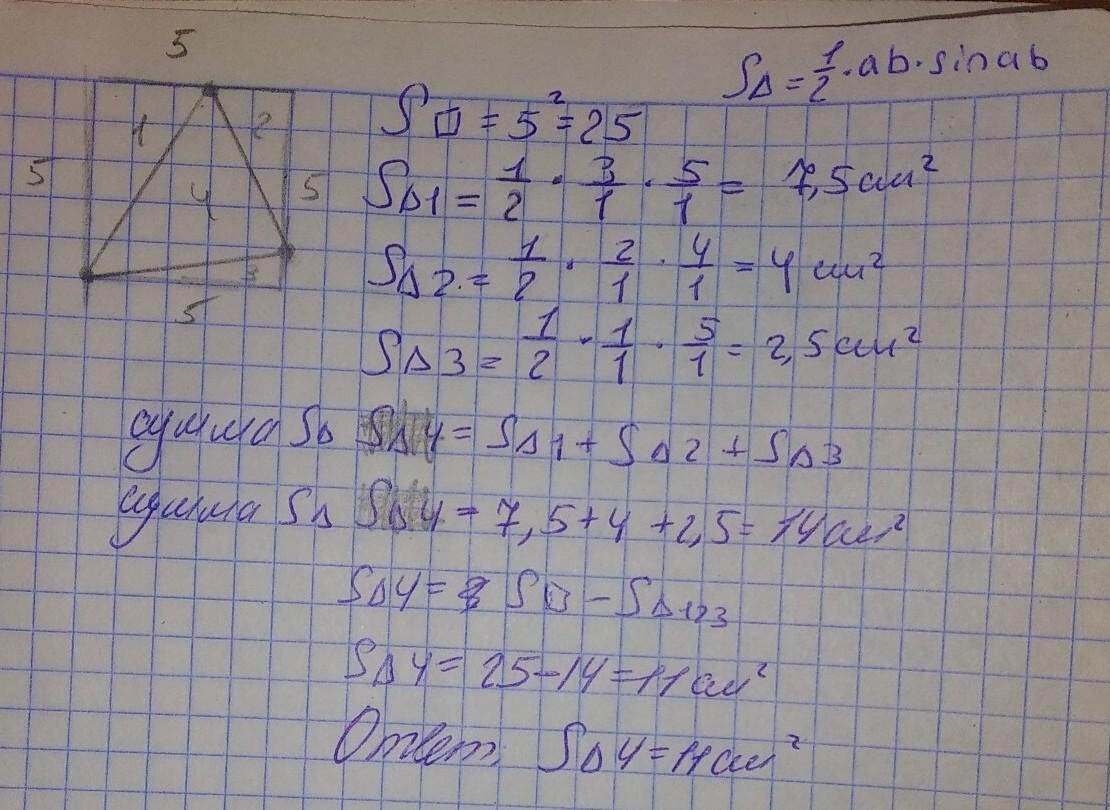 5
S△ = 1/2 · ab · sin ab
1 2
5 4 5
3
5
S□ = 5² = 25
S△1 = 1/2 · 3/1 · 5/1 = 7,5 см²
S△2. = 1/2 · 2/1 · 4/1 = 4 см²
S△3 = 1/2 · 1/1 · 5/1 = 2,5 см²
сумма S△ S△4 = S△1 + S△2 + S△3
сумма S△ S△4 = 7,5 + 4 + 2,5 = 14 см²
S△4 = S□ – S△123
S△4 = 25 – 14 = 11 см²
Ответ: S△4 = 11 см²